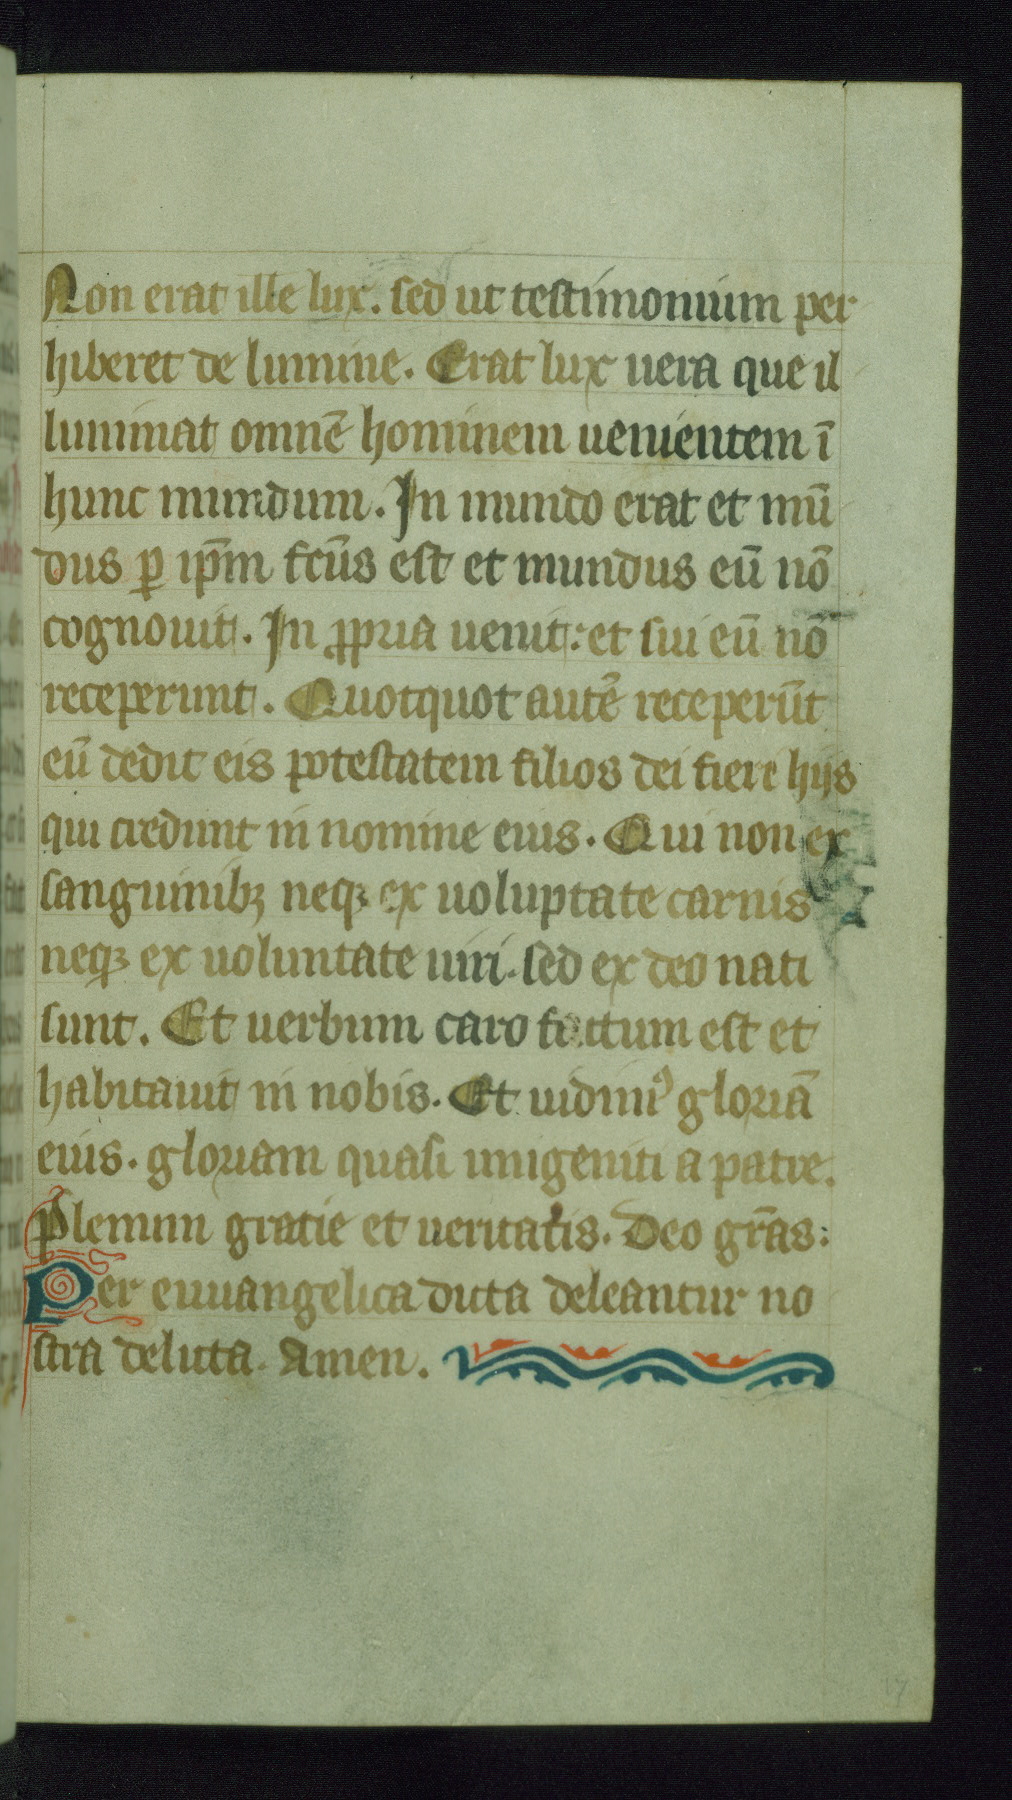 Non erat ille lux. sed ut testimonium per
hiberet de lumine. Erat lux uera que il
luminat omnē hominem uenientem ī
hunc mundum. In mundo erat et mū
dus ꝑ ip̄m fcūs est et mundus eū nō
cognouit. In ꝓpria uenit: et sui eū nō
receperunt. Quotquot autē receperūt
eū dedit eis potestatem filios dei fieri hijs
qui credunt in nomine eius. Qui non ex
sanguinibꝫ neqꝫ ex uoluptate carnis
neqꝫ ex uoluntate uiri. sed ex deo nati
sunt. Et uerbum caro factum est et
habitauit in nobis. Et uidimꝰ gloriā
eius. gloriam quasi unigeniti a patre.
Plenum gratie et ueritatis. Deo gr̄as:
Per euuangelica dicta deleantur no
stra delicta. Amen.
17